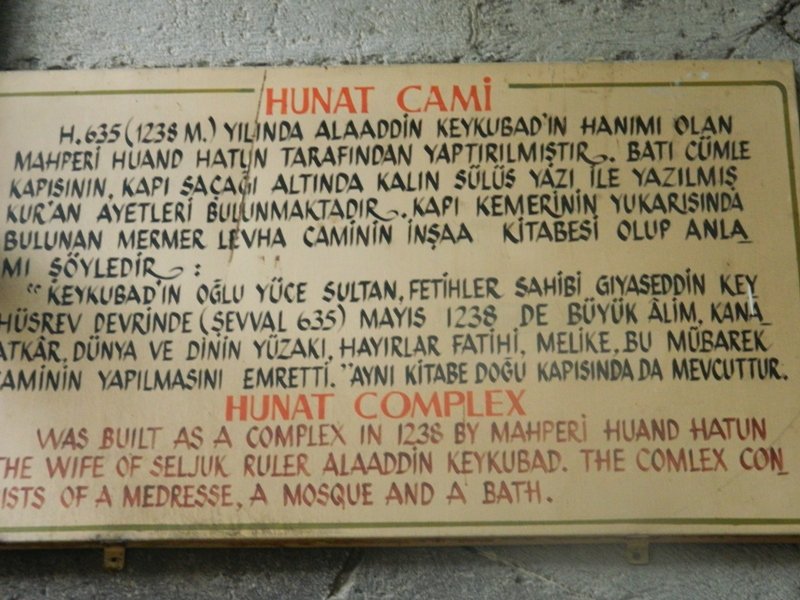 HUNAT CAMİ
H.635 (1238 M.) YILINDA ALAADDİN KEYKUBAD'IN HANIMI OLAN
MAHPERİ HUAND HATUN TARAFINDAN YAPTIRILMIŞTIR. BATI CÜMLE
KAPISININ, KAPI SAÇAĞI ALTINDA KALIN SÜLÜS YAZI İLE YAZILMIŞ
KUR'AN AYETLERİ BULUNMAKTADIR. KAPI KEMERİNİN YUKARISINDA
BULUNAN MERMER LEVHA CAMİNİN İNŞAA KİTABESİ OLUP ANLA_
MI ŞÖYLEDİR :
"KEYKUBAD'IN OĞLU YÜCE SULTAN, FETİHLER SAHİBİ GIYASEDDİN KEY
HÜSREV DEVRİNDE (ŞEVVAL 635) MAYIS 1238 DE BÜYÜK ÂLİM, KANA_
ATKÂR, DÜNYA VE DİNİN YÜZAKI, HAYIRLAR FATİHİ, MELİKE, BU MÜBAREK
CAMİNİN YAPILMASINI EMRETTİ." AYNI KİTABE DOĞU KAPISINDA DA MEVCUTTUR.
HUNAT COMPLEX
WAS BUILT AS A COMPLEX IN 1238 BY MAHPERİ HUAND HATUN
THE WIFE OF SELJUK RULER ALAADDİN KEYKUBAD. THE COMLEX CON_
ISTS OF A MEDRESSE, A MOSQUE AND A BATH.